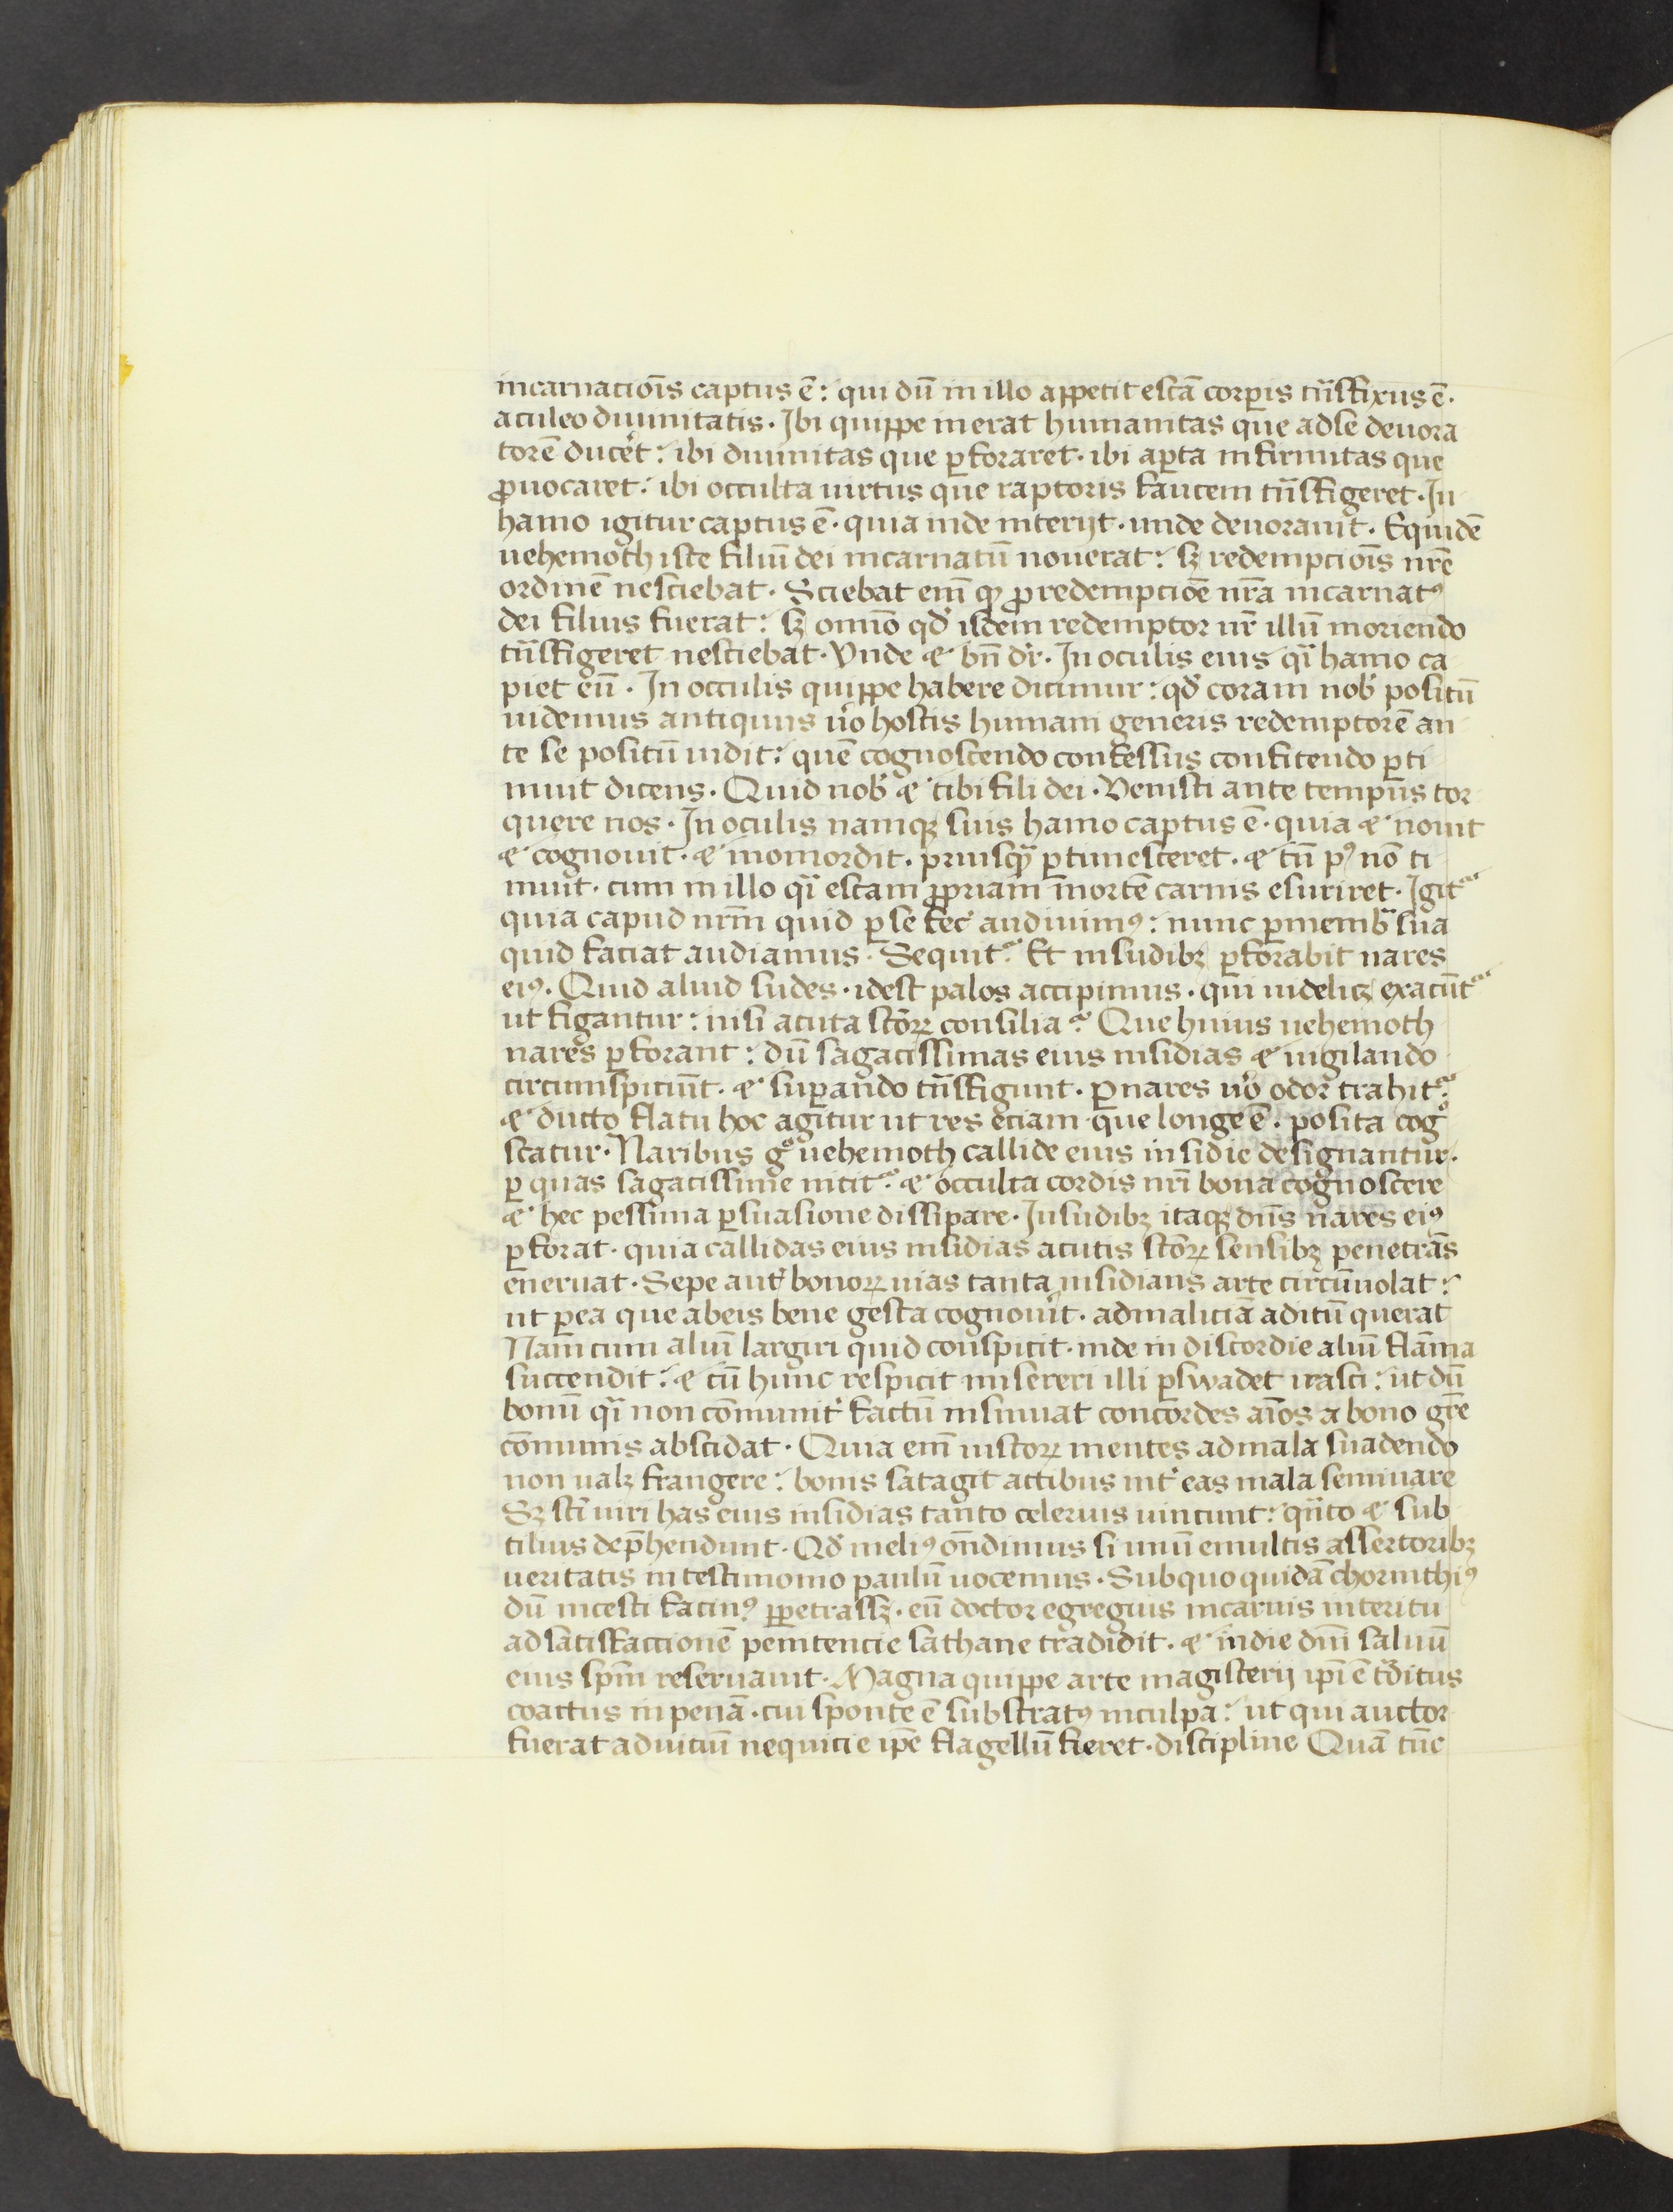 incarnaciois captus ē: qui dū in illo appetit escā corꝑis tⁿsfixus ē.
aculeo diuinitatis. Ibi quippe inerat humanitas que adse deuora
torē duceret: ibi diuinitas que ꝑforaret. ibi aꝑta infirmitas que
ꝓuocaret: ibi occulta uirtus que raptoris faucem tⁿsfigeret. In
hamo igitur captus ē. quia inde interijt. unde deuorauit. Equidē
uehemoth iste filiū dei incarnatū nouerat: sꝫ redempciōis nr̄e
ordinē nesciebat. Sciebat em̄ ꝙ ꝓ redempcioē nr̄a incarnatꝰ
dei filius fuerat: sꝫ omīo qd̓ isdem redemptor nr̄ illū moriendo
tⁿsfigeret nesciebat. Vnde ⁊ bn̄ dr̄. In oculis eius qⁱ hamo ca
piet eū. In occulis quippe habere dicimur: qd̓ coram nob̓ positū
uidemus antiquus ūo hostis humani generis redemptorē an
te se positū uidit: quē cognoscendo confessus confitendo ꝑti
muit dicens. Quid nob̓ ⁊ tibi fili dei. Venisti ante tempus tor
quere nos. In oculis namqꝫ suis hamo captus ē. quia ⁊ nouit
⁊ cognouit. ⁊ momordit. priusqᷓ ꝑtimesceret. ⁊ tū pꝰ nō ti
muit. cum in illo qⁱ escam ꝓpriam mortē carnis esuriret. Igitᷣ
quia capud nrm̄ quid ꝑ se fec̓ audiuimꝰ: nunc ꝑ membᷓ sua
quid faciat audiamus. Sequitᷣ. Et insudibꝫ ꝑforabit nares
eiꝰ. Quid aliud sudes. idest palos accipimus. qui uidelicꝫ exacūtᷣ
ut figantur: nisi acuta scōꝝ consilia? Que huius uehemoth
nares ꝑforant: dū sagacissimas eius insidias ⁊ uigilando
circumspiciūt. ⁊ suꝑando tⁿsfigunt. ꝑ nares ūo odor trahitᷣ.
⁊ ducto flatu hoc agitur ut res eciam que longe ē. posita cogᵒ
scatur. Naribus gᵒ uehemoth callide eius insidie designantur.
ꝑ quas sagacissime nititᷣ. ⁊ occulta cordis nrī bona cognoscere
⁊ hec pessima ꝑsuasione dissipare. Insudibꝫ itaqꝫ dn̄s nares eiꝰ
ꝑforat. quia callidas eius insidias acutis scōꝝ sensibꝫ penetrās
eneruat. Sepe aut̓ bonoꝝ uias tanta insidians arte circūuolat:
ut ꝑea que abeis bene gesta cognouīt. admaliciā aditū querat
Nam cum aliū largiri quid conspicit. inde in discordie aliū flāma
succendit: ⁊ cū hunc respicit misereri illi ꝑswadet irasci: ut dū
bonū qⁱ non cōmunit̓ factū insinuat concordes aīos a bono gr̄e
cōmunis abscidat. Quia em̄ iustoꝝ mentes admala suadendo
non ualꝫ frangere: bonis satagit actibus int̓ eas mala seminare
Sꝫ scī uiri has eius insidias tanto celerius uincunt: qⁿto ⁊ sub
tilius dep̄hendunt. Qd̓ meliꝰ ōndimus si unū emultis assertoribꝫ
ueritatis in testimonio paulū uocemus. Subquo quidā chorinthiꝰ
dū incesti facinꝰ ꝑpetrassꝫ. eū doctor egregius incarnis interitu
ad satisfaccionē penitencie sathane tradidit. ⁊ indie dn̄i saluū
eius spm̄ reseruauit. Magna quippe arte magisterij ipi ē tᷓditus
coactus in penā. cui sponte ē substratꝰ inculpa: ut qui auctor
fuerat aduiciū nequicie ipē flagellū fieret. discipline Quā tūc